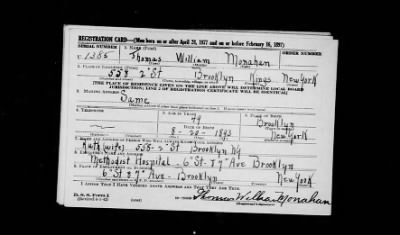 REGISTRATION CARD—(Men born on or after April 28, 1877 and on or before February 16, 1897)
SERIAL NUMBER 1. NAME (Print) ORDER NUMBER
U 1385 Thomas William Monahan
2. PLACE OF RESIDENCE (Print)
558 - 2" St Brooklyn Kings New York
[THE PLACE OF RESIDENCE GIVEN ON THE LINE ABOVE WILL DETERMINE LOCAL BOARD
JURISDICTION; LINE 2 OF REGISTRATION CERTIFICATE WILL BE IDENTICAL]
3. MAILING ADDRESS
Same
4. TELEPHONE 5. AGE IN YEARS 6. PLACE OF BIRTH
49 Brooklyn
DATE OF BIRTH
8 - 28 - 1893 New York
7. NAME AND ADDRESS OF PERSON WHO WILL ALWAYS KNOW YOUR ADDRESS
Ruth (wife) 558 - 2" St Brooklyn NY
8. EMPLOYER'S NAME AND ADDRESS
Methodist Hospital - 6" St - & 7" Ave Brooklyn
9. PLACE OF EMPLOYMENT OR BUSINESS
6" St & 7" Ave - Brooklyn New York
I AFFIRM THAT I HAVE VERIFIED ABOVE ANSWERS AND THAT THEY ARE TRUE.
D. S. S. Form 1
Thomas William Monahan